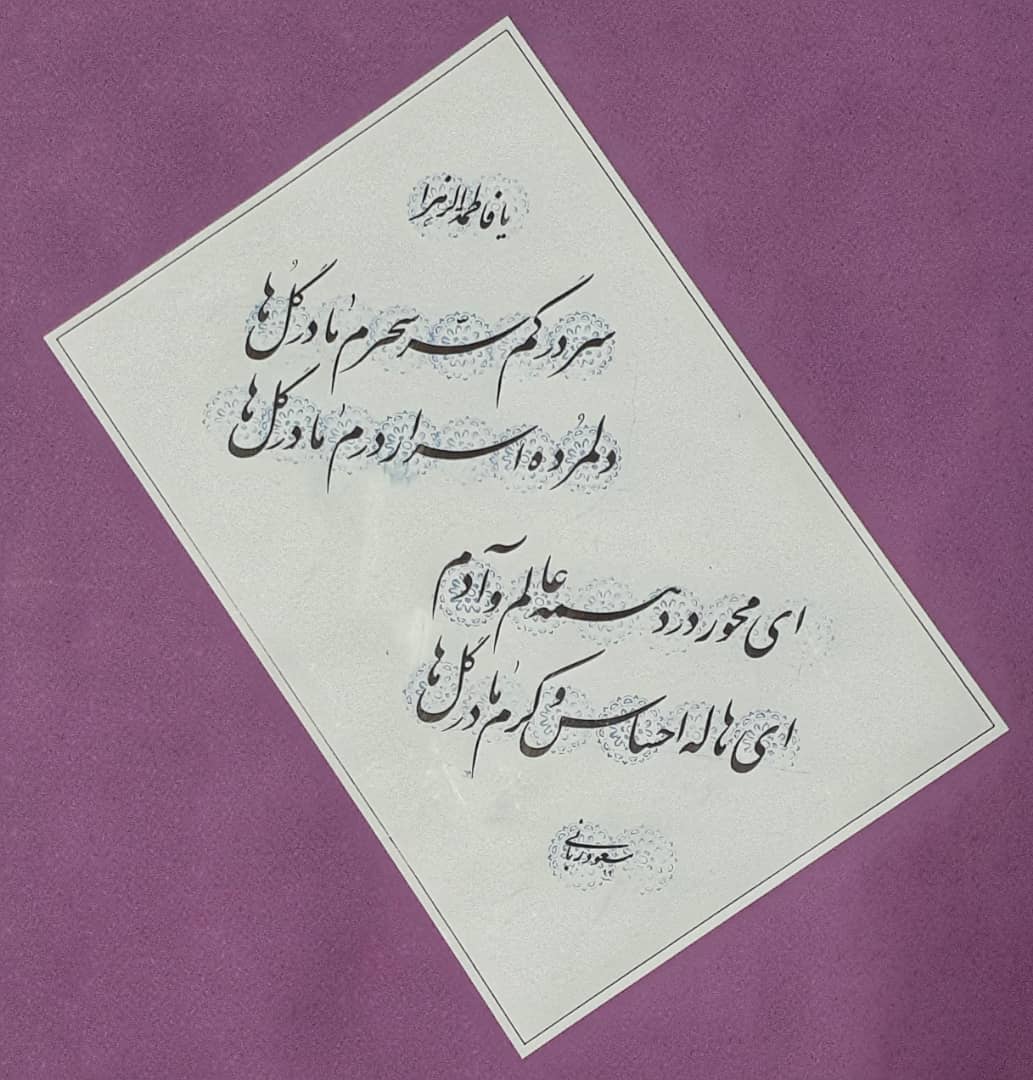 یا فاطمة الزهرا
سر در گم سرّ سحرم مادر گلُ ها
دلمُرده اسرار درم مادر گل ها
ای محور درد همه عالم و آدم
ای هاله احساس و کرم مادر گل ها
ربانی
۹۲